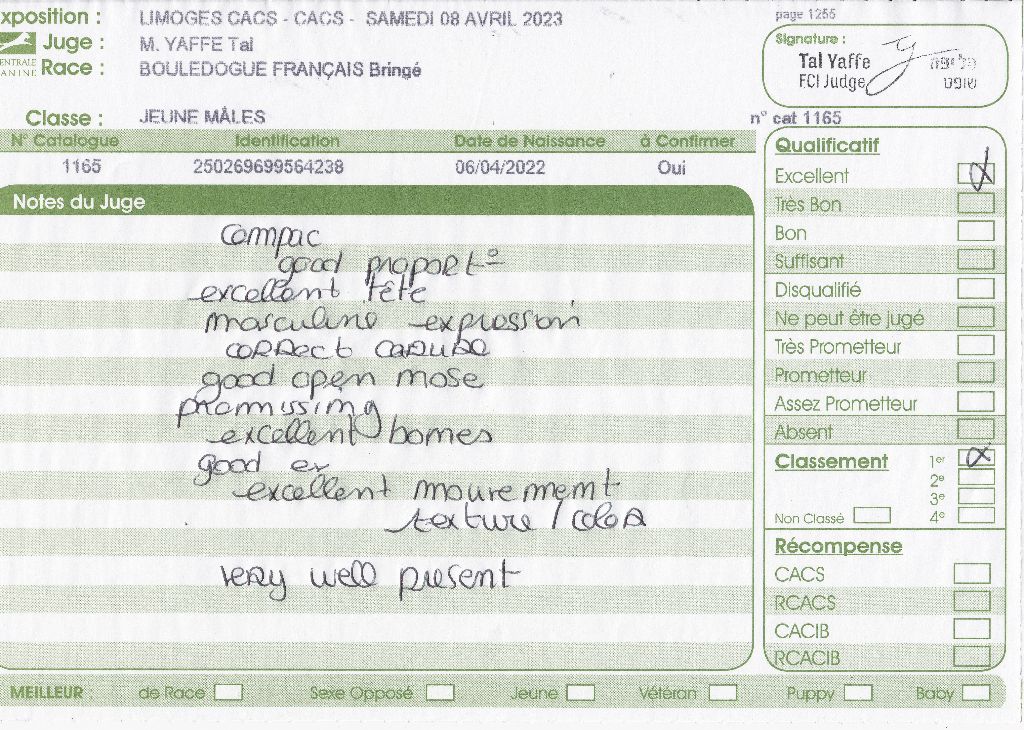 xposition : LIMOGES CACS - CACS - SAMEDI 08 AVRIL 2023
page 1255
Juge : M. YAFFE Tal
ENTRALE
ANINE
Race : BOULEDOGUE FRANÇAIS Bringé
Signature :
Tal Yaffe
FCI Judge
שופט
Classe : JEUNE MÂLES
n° cat 1165
N° Catalogue Identification Date de Naissance à Confirmer
1165 250269699564238 06/04/2022 Oui
Notes du Juge
compac
good proport°
excellent tête
masculine expression
correct
good open nose
promissing
excellent bones
good
excellent mouvement
texture / color
very well present
Qualificatif
Excellent
Très Bon
Bon
Suffisant
Disqualifié
Ne peut être jugé
Très Prometteur
Prometteur
Assez Prometteur
Absent
Classement 1er
2e
3e
Non Classé 4e
Récompense
CACS
RCACS
CACIB
RCACIB
MEILLEUR : de Race Sexe Opposé Jeune Vétéran Puppy Baby